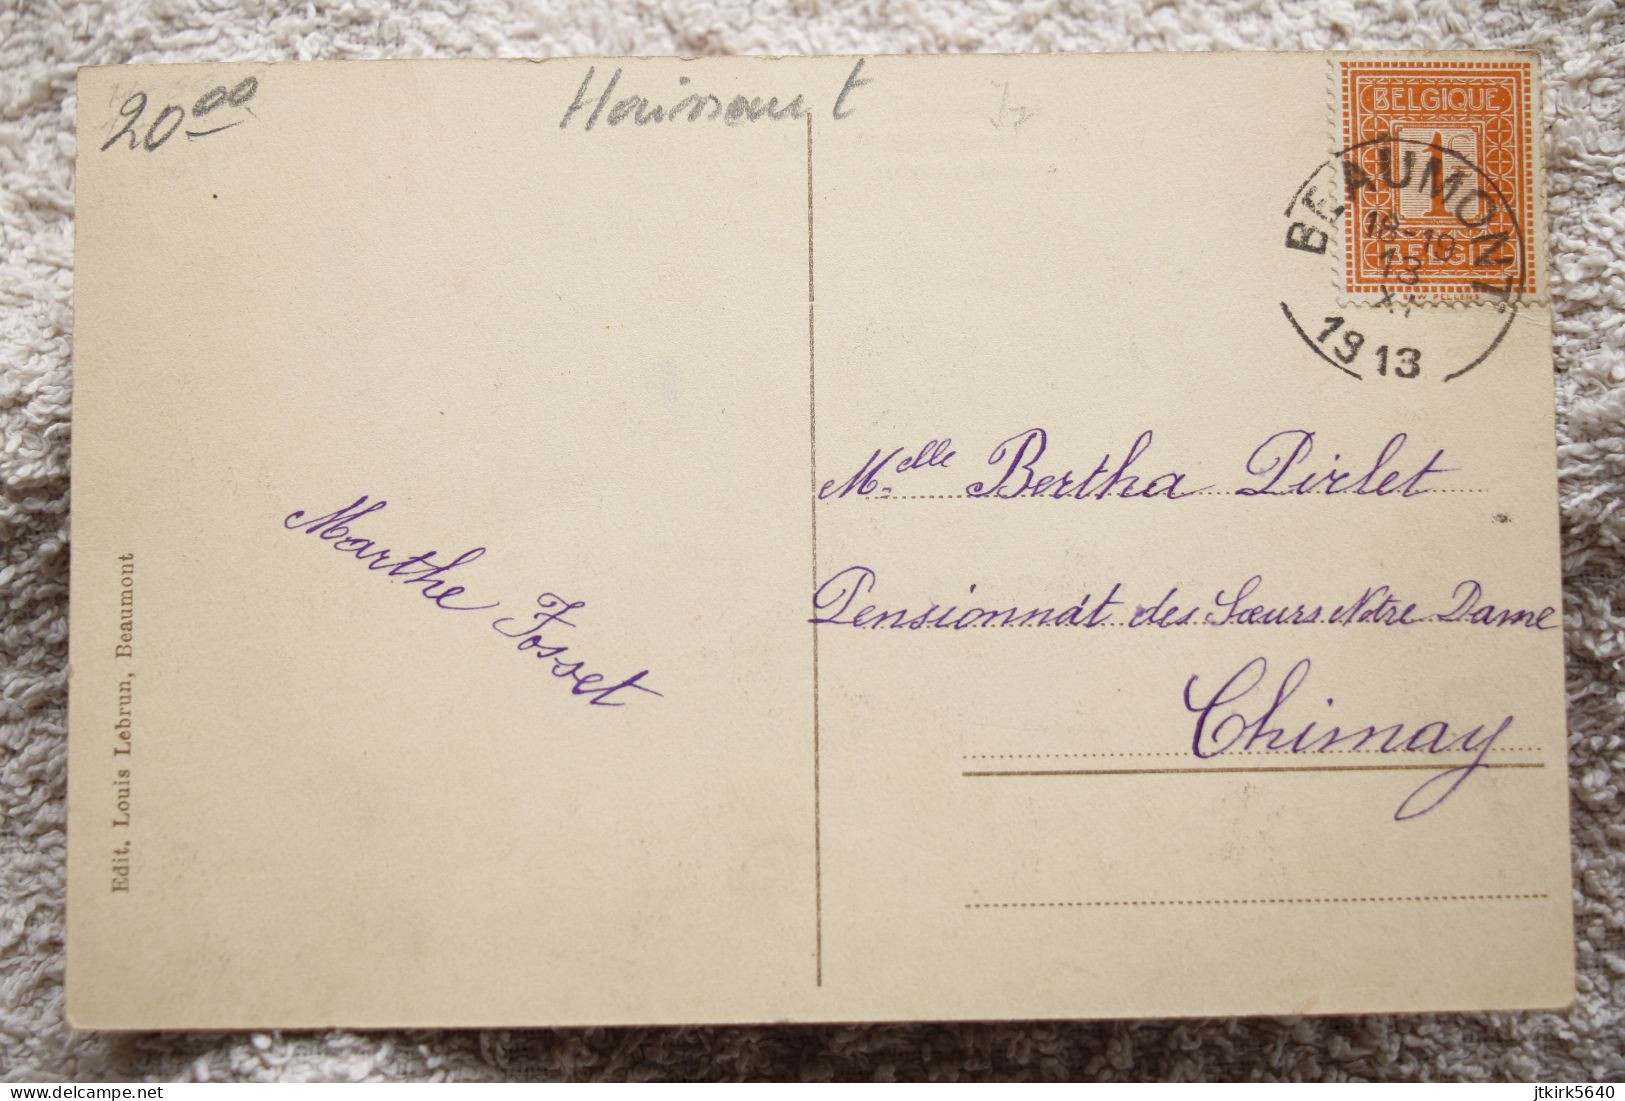 20.00
Hainaut
BELGIQUE
1c
BELGIË
BEAUMONT
18-19
13
XI
1913
Melle Bertha Pirlet
Pensionnat des Sœurs Notre Dame
Chimay
Marthe Fosset
Edit. Louis Lebrun, Beaumont
delcampe.net
jtkirk5640